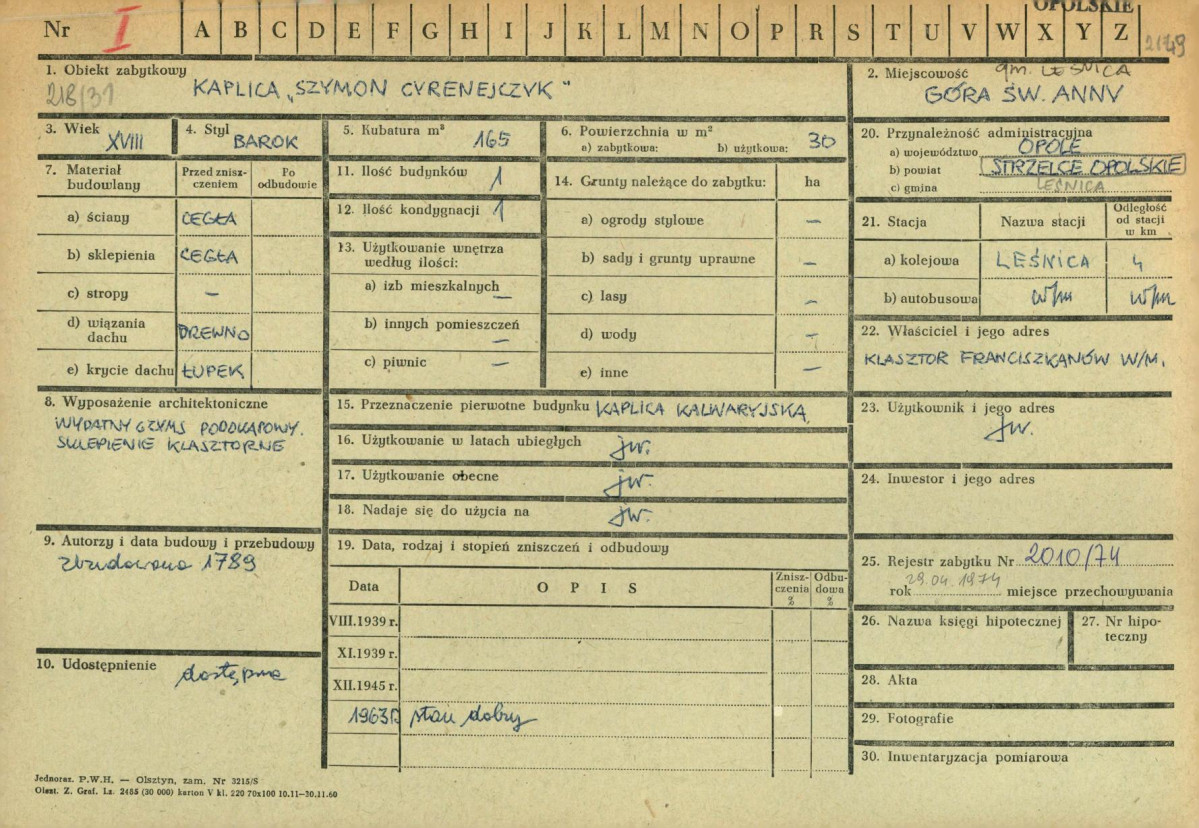 OPOLSKIE
Nr I A B C D E F G H I J K L M N O P R S T U V W X Y Z 2149
1. Obiekt zabytkowy
218/31
KAPLICA „SZYMON CYRENEJCZYK"
2. Miejscowość gm. LEŚNICA
GÓRA ŚW. ANNY
3. Wiek
XVIII
4. Styl
BAROK
5. Kubatura m³
165
6. Powierzchnia w m²
a) zabytkowa: b) użytkowa: 30
7. Materiał budowlany
Przed zniszczeniem
Po odbudowie
a) ściany CEGŁA
b) sklepienia CEGŁA
c) stropy –
d) wiązania dachu DREWNO
e) krycie dachu ŁUPEK
8. Wyposażenie architektoniczne
WYDATNY GZYMS PODOKAPOWY.
SKLEPIENIE KLASZTORNE
9. Autorzy i data budowy i przebudowy
zbudowano 1789
10. Udostępnienie
dostępna
11. Ilość budynków 1
12. Ilość kondygnacji 1
13. Użytkowanie wnętrza
według ilości:
a) izb mieszkalnych –
b) innych pomieszczeń –
c) piwnic –
14. Grunty należące do zabytku: ha
a) ogrody stylowe –
b) sady i grunty uprawne –
c) lasy –
d) wody –
e) inne –
15. Przeznaczenie pierwotne budynku KAPLICA KALWARYJSKA
16. Użytkowanie w latach ubiegłych jw.
17. Użytkowanie obecne jw.
18. Nadaje się do użycia na jw.
19. Data, rodzaj i stopień zniszczeń i odbudowy
Data OPIS Zniszczenia % Odbudowa %
VIII.1939 r.
XI.1939 r.
XII.1945 r.
1963 r. stan dobry
20. Przynależność administracyjna
a) województwo OPOLE
b) powiat STRZELCE OPOLSKIE
c) gmina LEŚNICA
21. Stacja Nazwa stacji Odległość od stacji w km
a) kolejowa LEŚNICA 4
b) autobusowa w/m w/m
22. Właściciel i jego adres
KLASZTOR FRANCISZKANÓW W/M.
23. Użytkownik i jego adres
jw.
24. Inwestor i jego adres
25. Rejestr zabytku Nr 2010/74
rok 29.04.1974 miejsce przechowywania
26. Nazwa księgi hipotecznej
27. Nr hipoteczny
28. Akta
29. Fotografie
30. Inwentaryzacja pomiarowa
Jednoraz. P.W.H. — Olsztyn, zam. Nr 3215/S
Olszt. Z. Graf. Lz. 2485 (30 000) karton V kl. 220 70x100 10.11—30.11.60